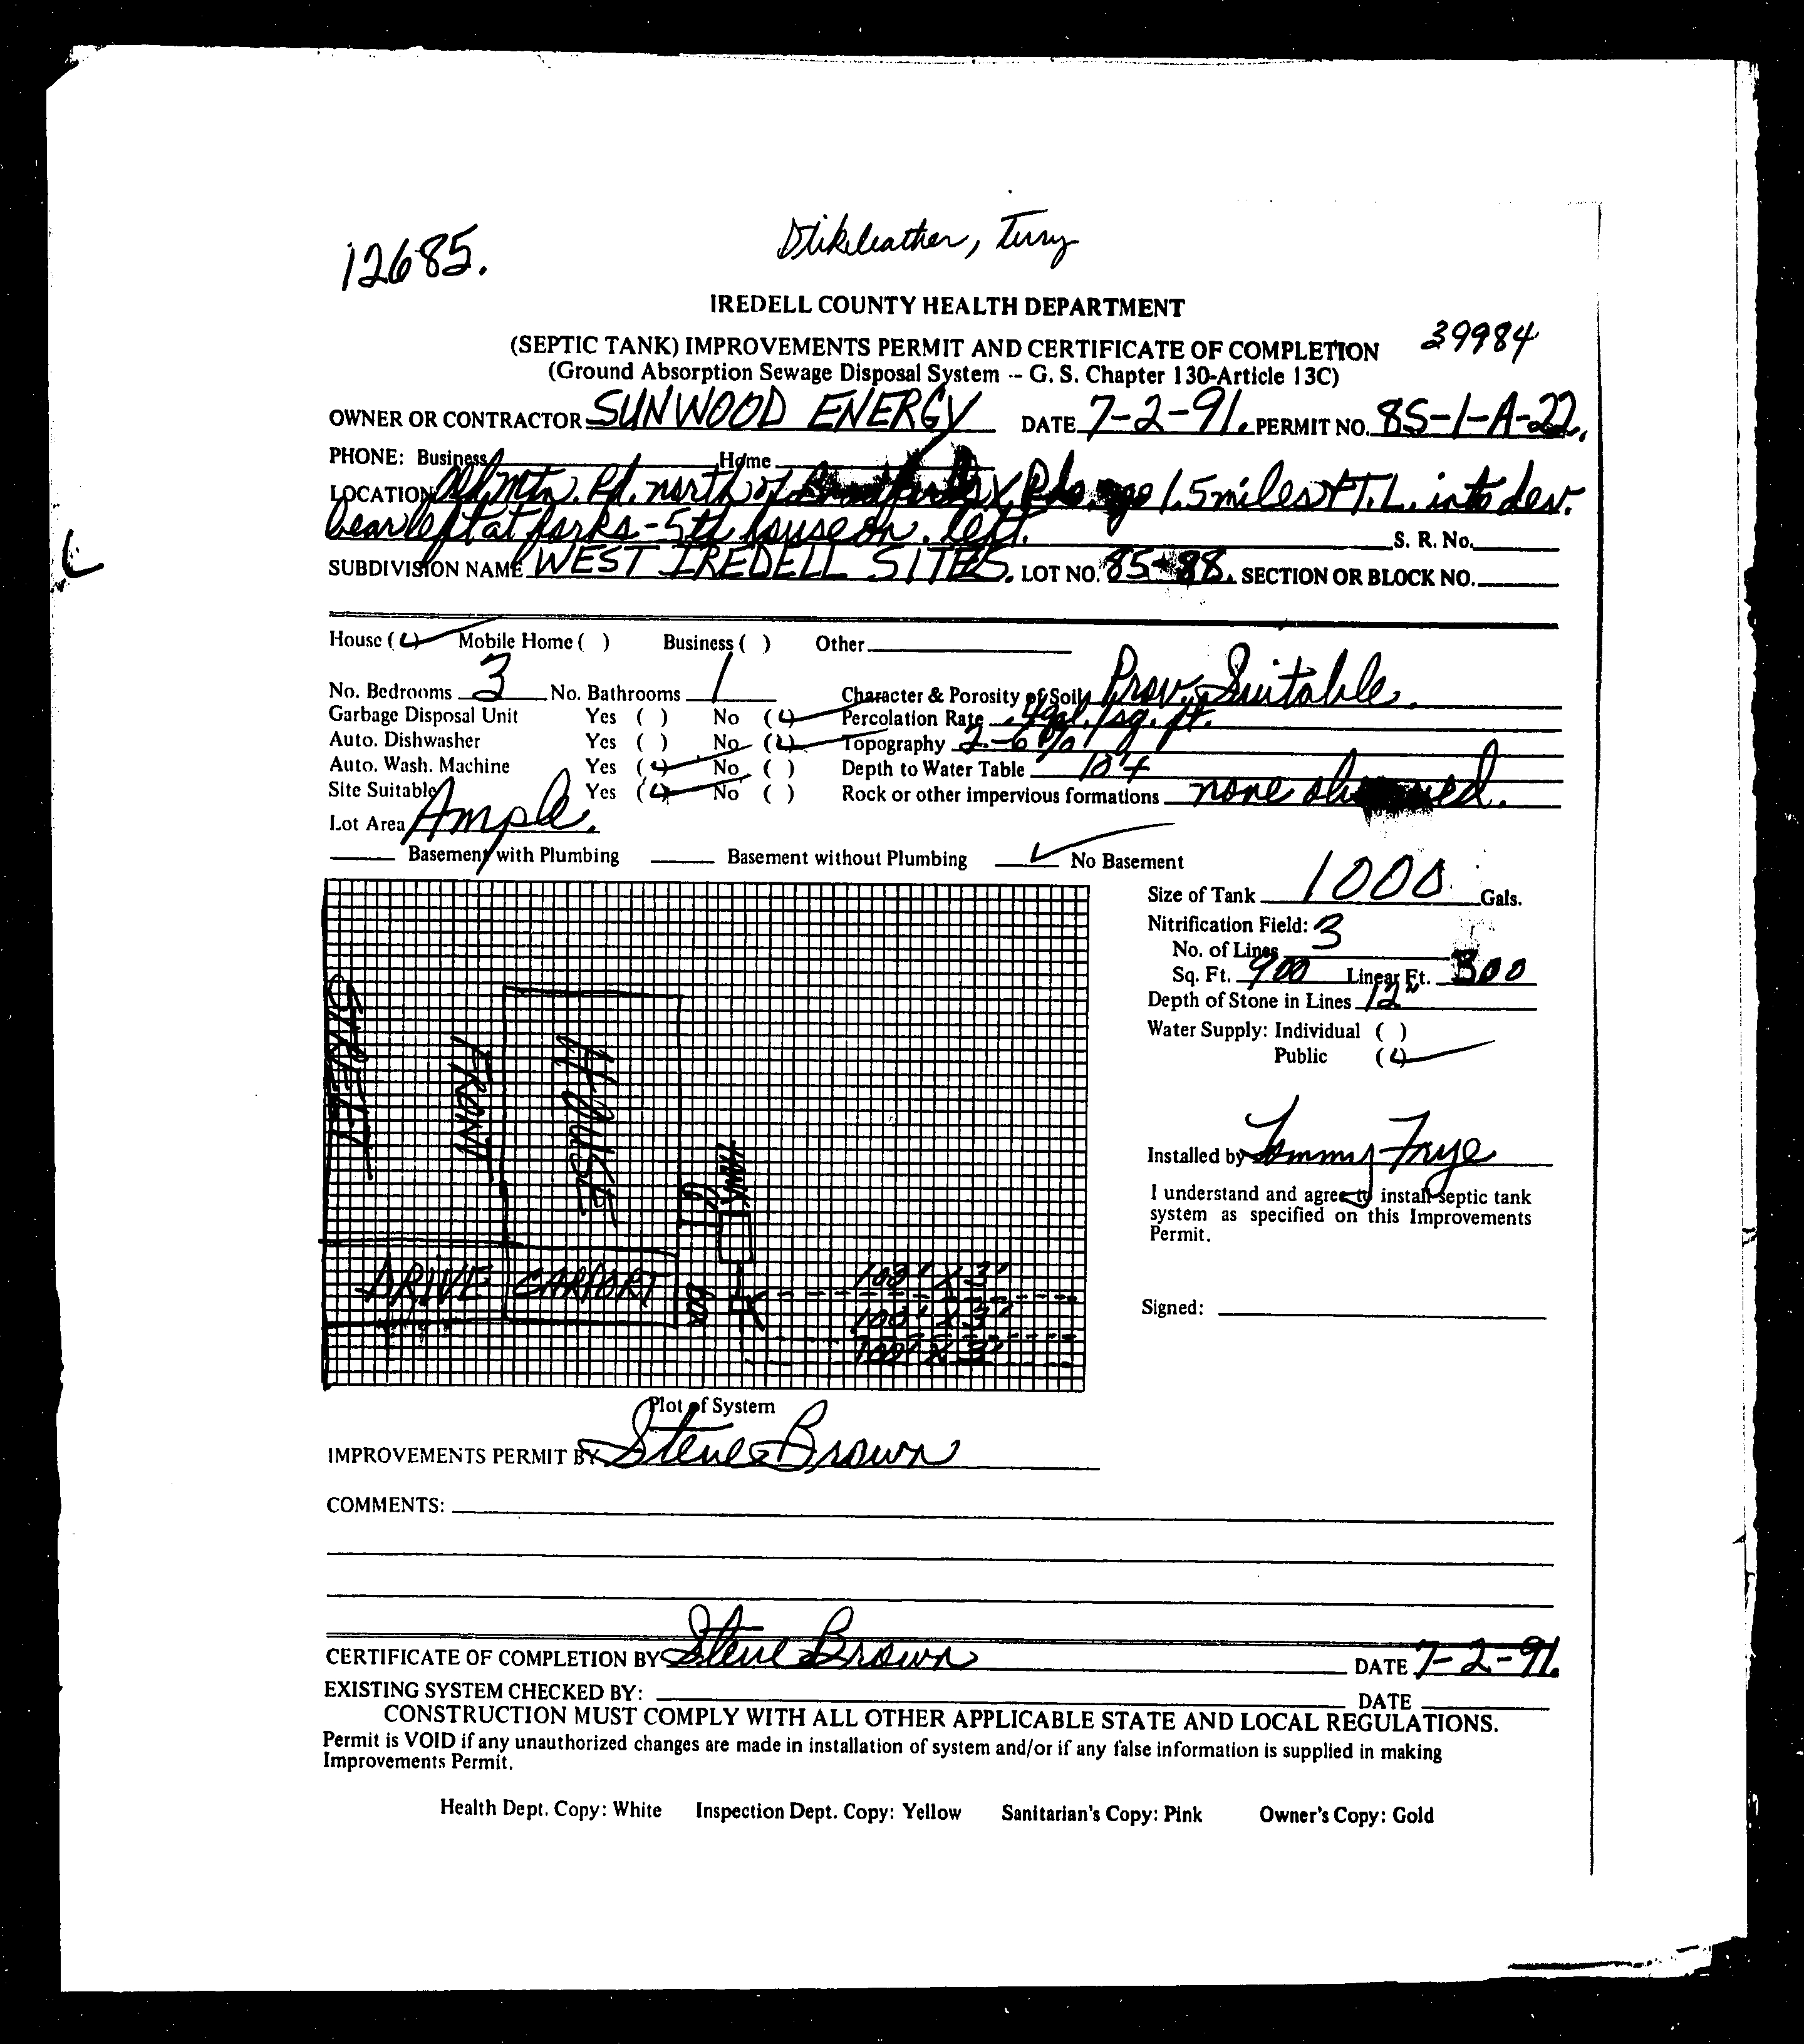 12685.
Stikeleather, Terry
IREDELL COUNTY HEALTH DEPARTMENT
39984
(SEPTIC TANK) IMPROVEMENTS PERMIT AND CERTIFICATE OF COMPLETION
(Ground Absorption Sewage Disposal System -- G. S. Chapter 130-Article 13C)
OWNER OR CONTRACTOR SUNWOOD ENERGY DATE 7-2-91. PERMIT NO. 85-1-A-22.
PHONE: Business Home
LOCATION Old Mtn. Rd. north of X Rds. go 1.5 miles + T.L. into dev.
bear left at forks - 5th house on left. S. R. No.
SUBDIVISION NAME WEST IREDELL SITES. LOT NO. 85-88. SECTION OR BLOCK NO.
House (✓) Mobile Home ( ) Business ( ) Other
No. Bedrooms 3 No. Bathrooms 1 Character & Porosity of Soil Prov. Suitable.
Garbage Disposal Unit Yes ( ) No (✓) Percolation Rate .4 gal./sq. ft.
Auto. Dishwasher Yes ( ) No (✓) Topography 2-6%
Auto. Wash. Machine Yes (✓) No ( ) Depth to Water Table 10'+
Site Suitable Yes (✓) No ( ) Rock or other impervious formations none observed.
Lot Area Ample.
Basement with Plumbing Basement without Plumbing ✓ No Basement
Size of Tank 1000 Gals.
Nitrification Field:
No. of Lines 3
Sq. Ft. 900 Linear Ft. 300
Depth of Stone in Lines 12"
Water Supply: Individual ( )
Public (✓)
STREET
FRONT
HOUSE
TANK
DRIVE CARPORT
BOX
100' X 3'
100' X 3'
100' X 3'
Installed by Tommy Frye
I understand and agree to install septic tank
system as specified on this Improvements
Permit.
Signed:
Plot of System
IMPROVEMENTS PERMIT BY Steve Brown
COMMENTS:
CERTIFICATE OF COMPLETION BY Steve Brown DATE 7-2-91.
EXISTING SYSTEM CHECKED BY: DATE
CONSTRUCTION MUST COMPLY WITH ALL OTHER APPLICABLE STATE AND LOCAL REGULATIONS.
Permit is VOID if any unauthorized changes are made in installation of system and/or if any false information is supplied in making
Improvements Permit.
Health Dept. Copy: White Inspection Dept. Copy: Yellow Sanitarian's Copy: Pink Owner's Copy: Gold